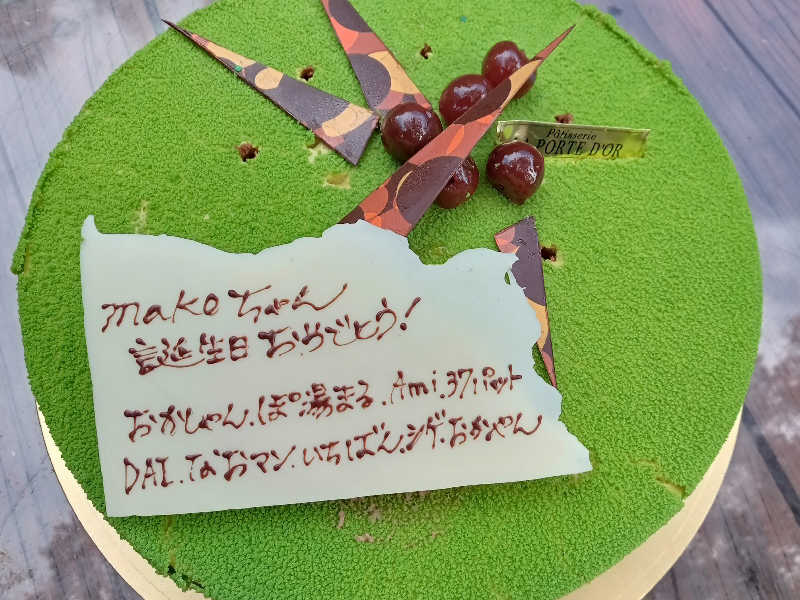 Pâtisserie
PORTE D'OR
makoちゃん
誕生日おめでとう!
おかしゃん.ぽ湯まる.Ami.37パット
DAI.なおマン.いちばん.シゲ.おかやん